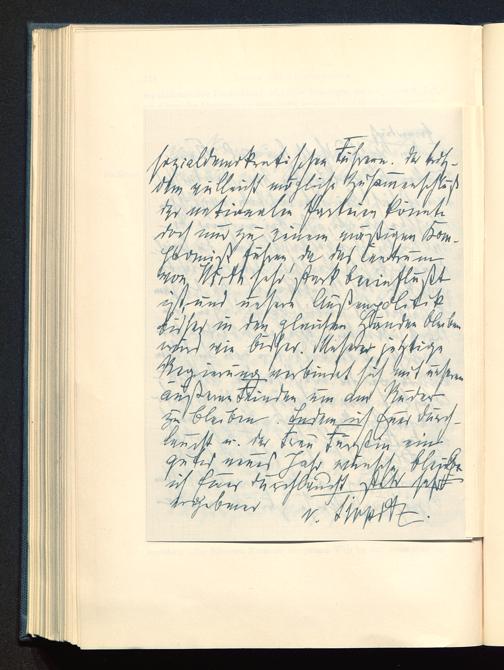 sozialdemokratischen Führern. Der trotz-
dem vielleicht mögliche Zusammenschluß
der nationalen Parteien könnte
doch nur zu einem mäßigen Kom-
promiß führen, da das Centrum
von Wirth sehr stark beeinflußt
ist und unsere Außenpolitik
daher in den gleichen Händen bleiben
wird wie bisher. Unsere jetzige
Regierung verbindet sich mit unseren
äußeren Feinden um am Ruder
zu bleiben. Indem ich Euer Durch-
laucht u. der Frau Fürstin ein
gutes neues Jahr wünsche bleibe
ich Euer Durchlaucht sehr
ergebener v. Tirpitz.